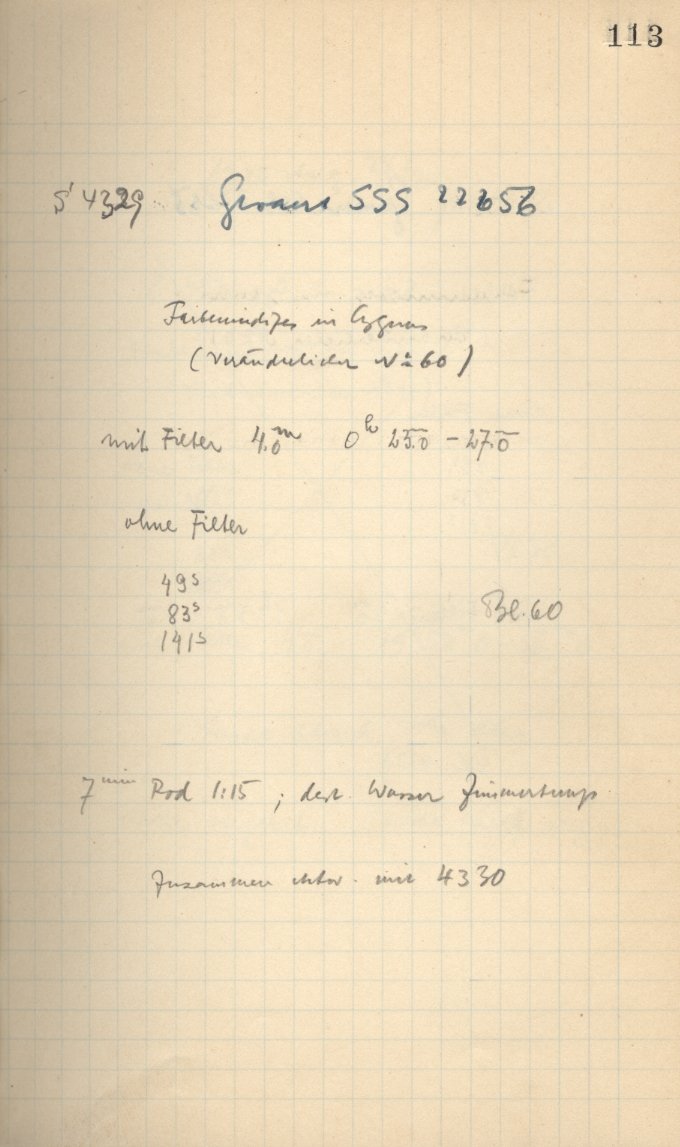 113
S 4329 Gevaert SSS 22656
Farbenindizes in Cygnus
(Veränderlicher No 60)
mit Filter 4.0m 0h 23.0 - 27.0
ohne Filter
49s
83s Bl. 60
141s
7min Rod 1:15 ; dest. Wasser Zimmertemp
Zusammen entw. mit 4330